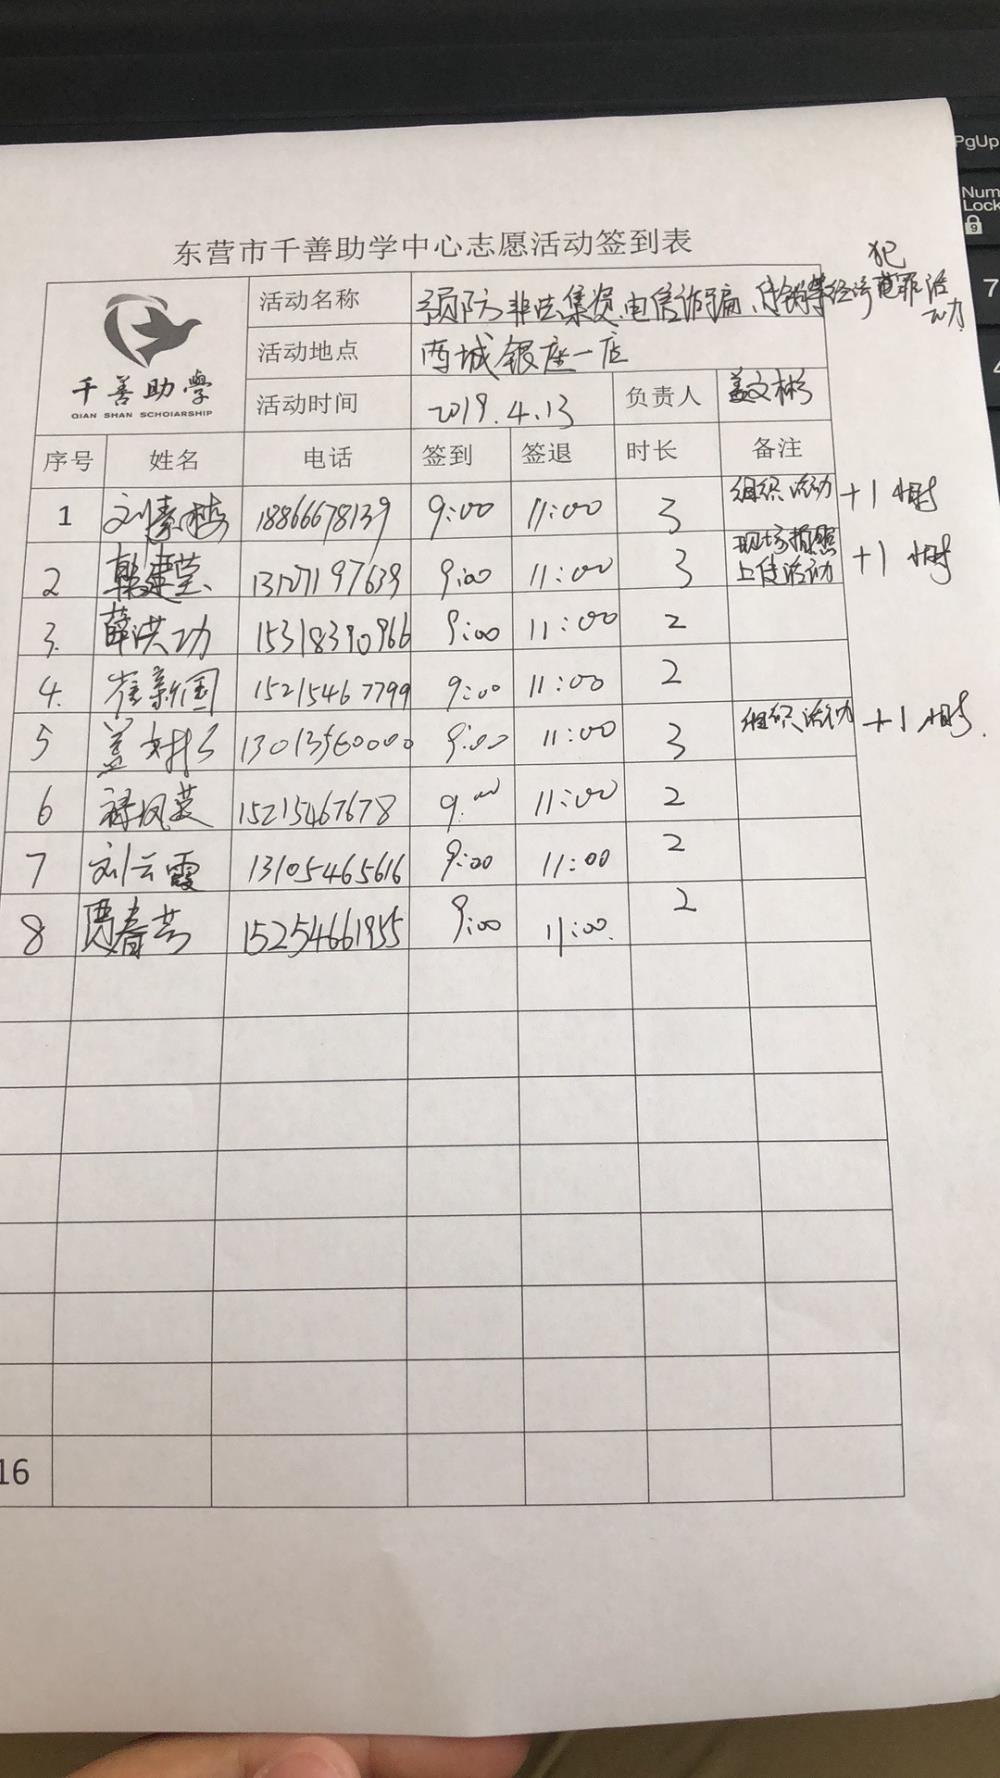 东营市千善助学中心志愿活动签到表
千善助學
QIAN SHAN SCHOIARSHIP
活动名称 预防非法集资、电信诈骗、传销等经济犯罪活动
活动地点 西城银座一店
活动时间 2019.4.13 负责人 盖文彬
序号 姓名 电话 签到 签退 时长 备注
1 刘素梅 18866678139 9:00 11:00 3 组织活动 +1小时
2 韩建莹 13127197639 9:00 11:00 3 现场拍照上传活动 +1小时
3. 薛洪功 15318390966 9:00 11:00 2
4. 崔新国 15215467799 9:00 11:00 2
5 盖文彬 13013560000 9:00 11:00 3 组织活动 +1小时.
6 凤英 15215467678 9:00 11:00 2
7 刘云霞 13105465616 9:00 11:00 2
8 贾春芳 15254661955 9:00 11:00. 2
16
PgUp
Num
Lock
9
7
4